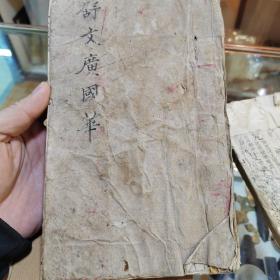 舒文廣國華